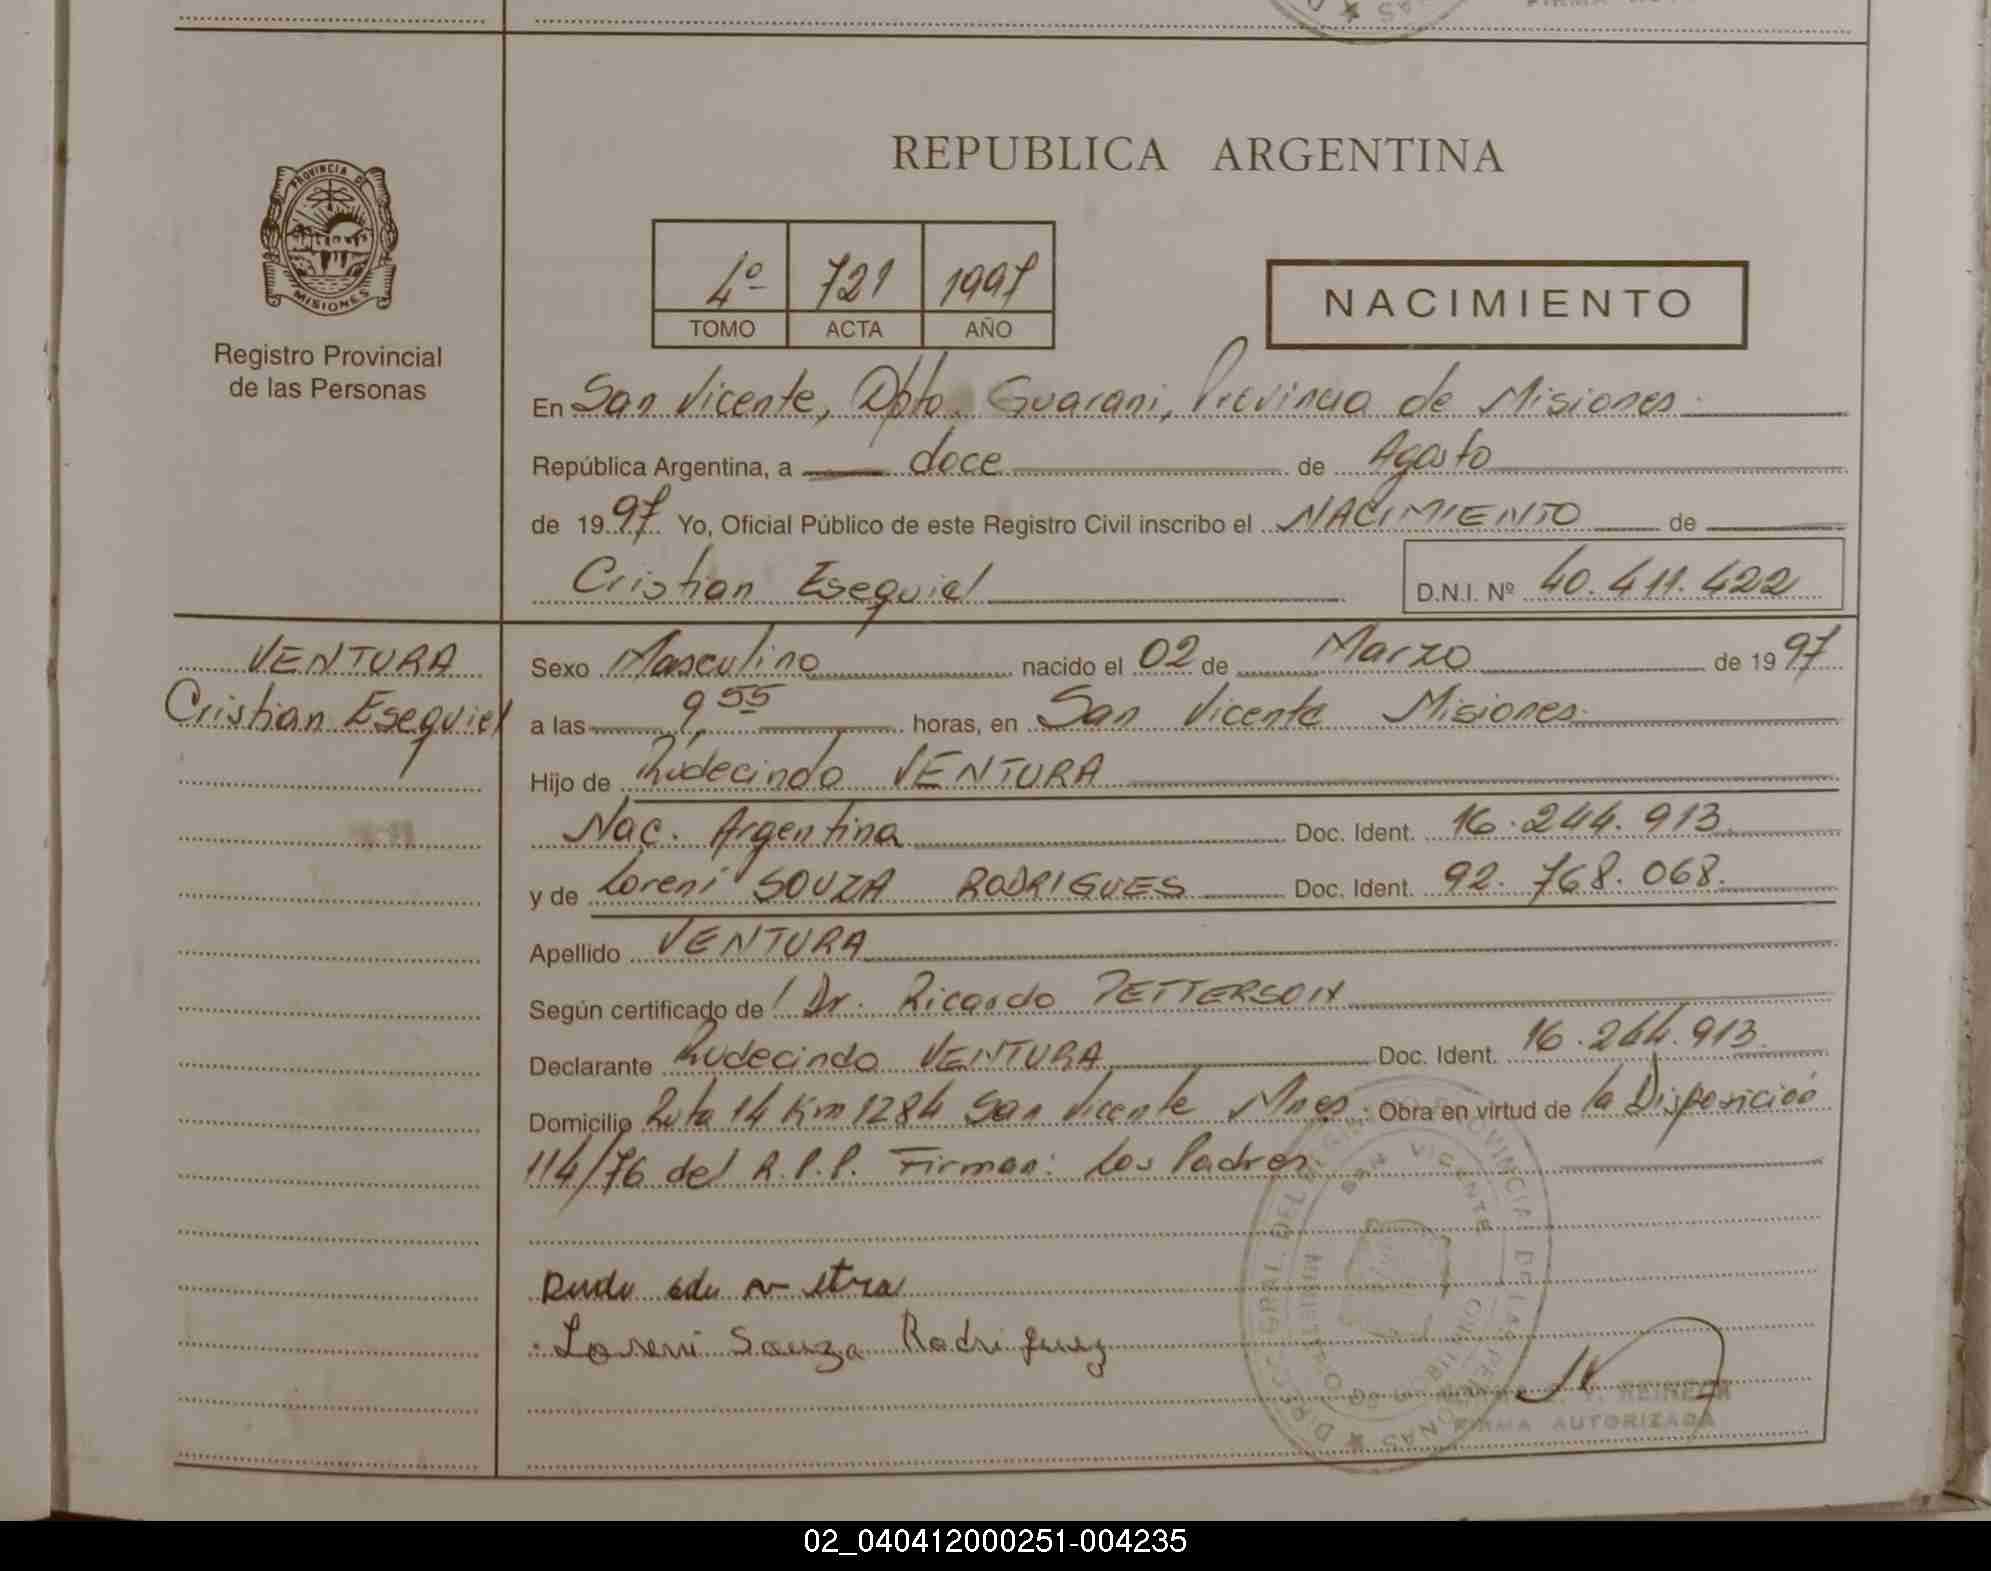 REPUBLICA ARGENTINA
PROVINCIA DE
MISIONES
Registro Provincial
de las Personas
4º 721 1997
TOMO ACTA AÑO
NACIMIENTO
En San Vicente, Dpto. Guarani, Provincia de Misiones
República Argentina, a doce de Agosto
de 1997 Yo, Oficial Público de este Registro Civil inscribo el NACIMIENTO de
Cristian Esequiel D.N.I. Nº 40.411.422
VENTURA
Cristian Esequiel
Sexo Masculino nacido el 02 de Marzo de 1997
a las 9 55 horas, en San Vicente Misiones
Hijo de Rudecindo VENTURA
Nac. Argentina Doc. Ident. 16.244.913
y de Loreni SOUZA RODRIGUES Doc. Ident. 92.768.068.
Apellido VENTURA
Según certificado de Dr. Ricardo PETTERSON
Declarante Rudecindo VENTURA Doc. Ident. 16.244.913
Domicilio Ruta 14 Km 1284 San Vicente Mnes. Obra en virtud de la Disposición
114/76 del R.P.P. Firman: Los Padres
Loreni Souza Rodriguez
SAN VICENTE
FIRMA AUTORIZADA
02_040412000251-004235